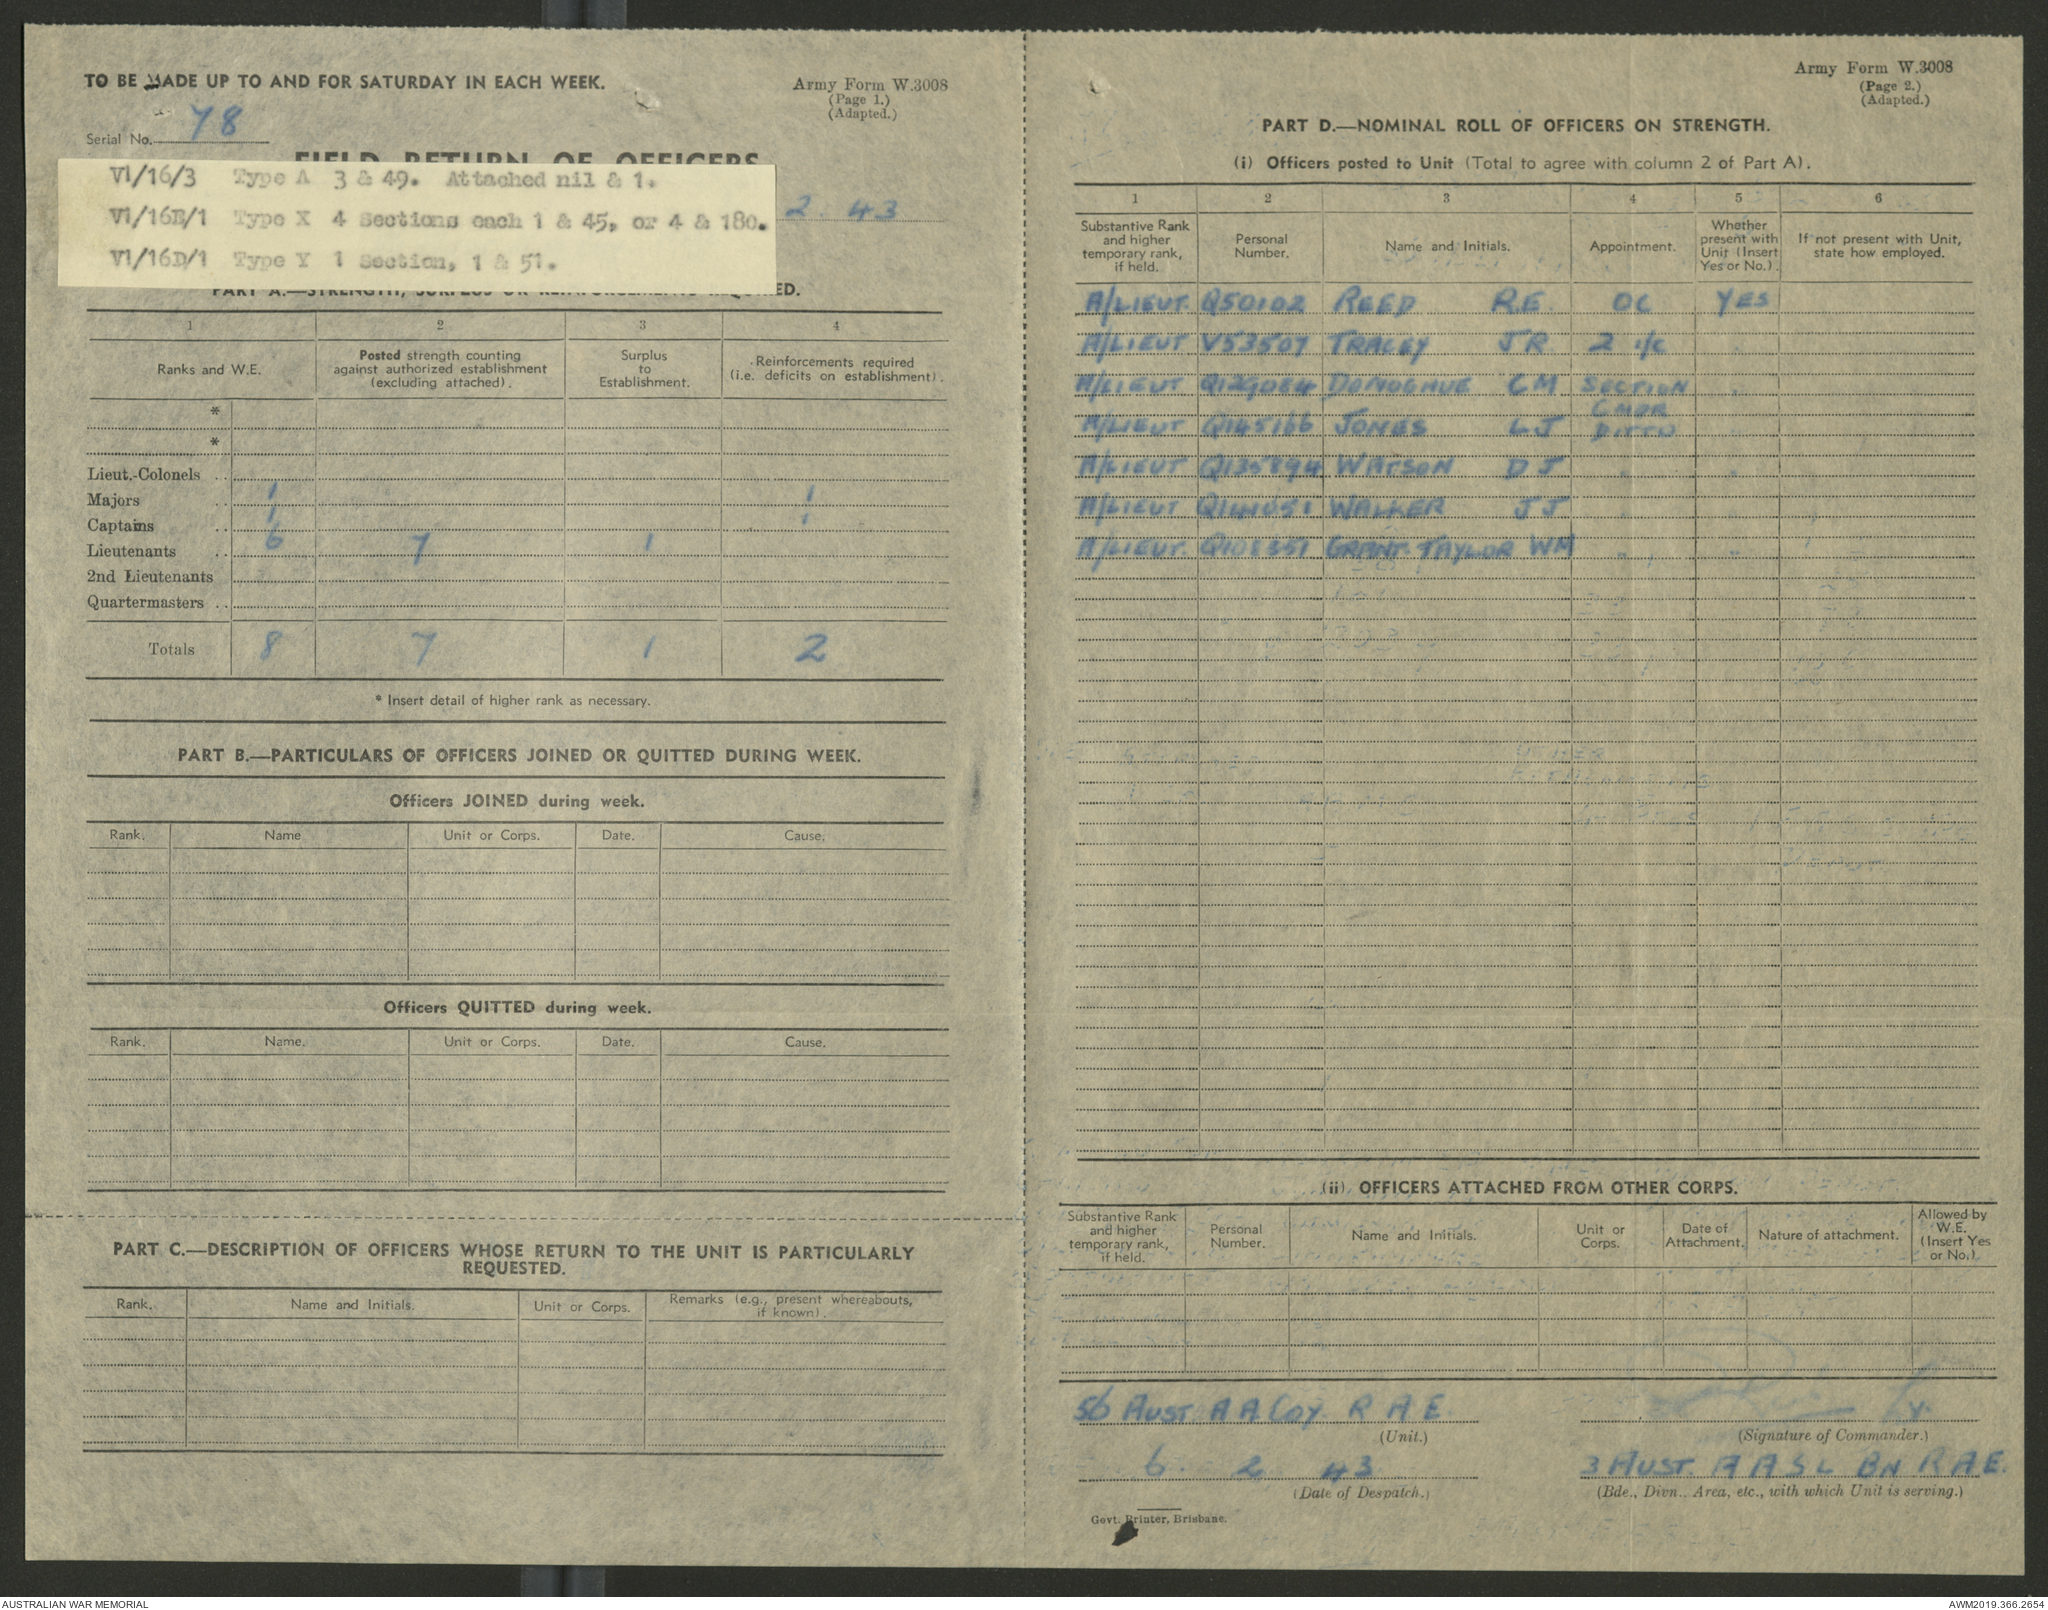 TO BE MADE UP TO AND FOR SATURDAY IN EACH WEEK.
Army Form W.3008
(Page 1.)
(Adapted.)
Serial No. 78
FIELD RETURN OF OFFICERS
VI/16/3 Type A 3 & 49. Attached nil & 1.
VI/16B/1 Type X 4 Sections each 1 & 45, or 4 & 180.
VI/16D/1 Type Y 1 Section, 1 & 51.
2. 43
PART A.—STRENGTH, SURPLUS OR REINFORCEMENTS REQUIRED.
1 2 3 4
Ranks and W.E.
Posted strength counting against authorized establishment (excluding attached).
Surplus to Establishment.
Reinforcements required (i.e. deficits on establishment).
*
*
Lieut.-Colonels ..
Majors .. 1 1
Captains .. 1 1
Lieutenants .. 6 7 1
2nd Lieutenants
Quartermasters ..
Totals 8 7 1 2
* Insert detail of higher rank as necessary.
PART B.—PARTICULARS OF OFFICERS JOINED OR QUITTED DURING WEEK.
Officers JOINED during week.
Rank. Name Unit or Corps. Date. Cause.
Officers QUITTED during week.
Rank. Name. Unit or Corps. Date. Cause.
PART C.—DESCRIPTION OF OFFICERS WHOSE RETURN TO THE UNIT IS PARTICULARLY
REQUESTED.
Rank. Name and Initials. Unit or Corps. Remarks (e.g., present whereabouts, if known).
Army Form W.3008
(Page 2.)
(Adapted.)
PART D.—NOMINAL ROLL OF OFFICERS ON STRENGTH.
(i) Officers posted to Unit (Total to agree with column 2 of Part A).
1 2 3 4 5 6
Substantive Rank and higher temporary rank, if held.
Personal Number.
Name and Initials.
Appointment.
Whether present with Unit (Insert Yes or No.).
If not present with Unit, state how employed.
A/LIEUT. Q50102 REED R.E. OC YES
A/LIEUT V53507 TRACEY JR 2 i/c "
A/LIEUT Q129084 DONOGHUE CM SECTION CMDR "
A/LIEUT Q145166 JONES LJ DITTO
A/LIEUT Q135894 WATSON DJ " "
A/LIEUT Q141051 WALKER JJ " "
A/LIEUT. Q108351 GRANT. TAYLOR WM " "
(ii) OFFICERS ATTACHED FROM OTHER CORPS.
Substantive Rank and higher temporary rank, if held.
Personal Number.
Name and Initials.
Unit or Corps.
Date of Attachment.
Nature of attachment.
Allowed by W.E. (Insert Yes or No.)
56 AUST A A COY R A E
(Unit.)
(Signature of Commander.)
6. 2 43
(Date of Despatch.)
3 AUST. A A S L BN R A E.
(Bde., Divn., Area, etc., with which Unit is serving.)
Govt. Printer, Brisbane.
AUSTRALIAN WAR MEMORIAL
AWM2019.366.2654